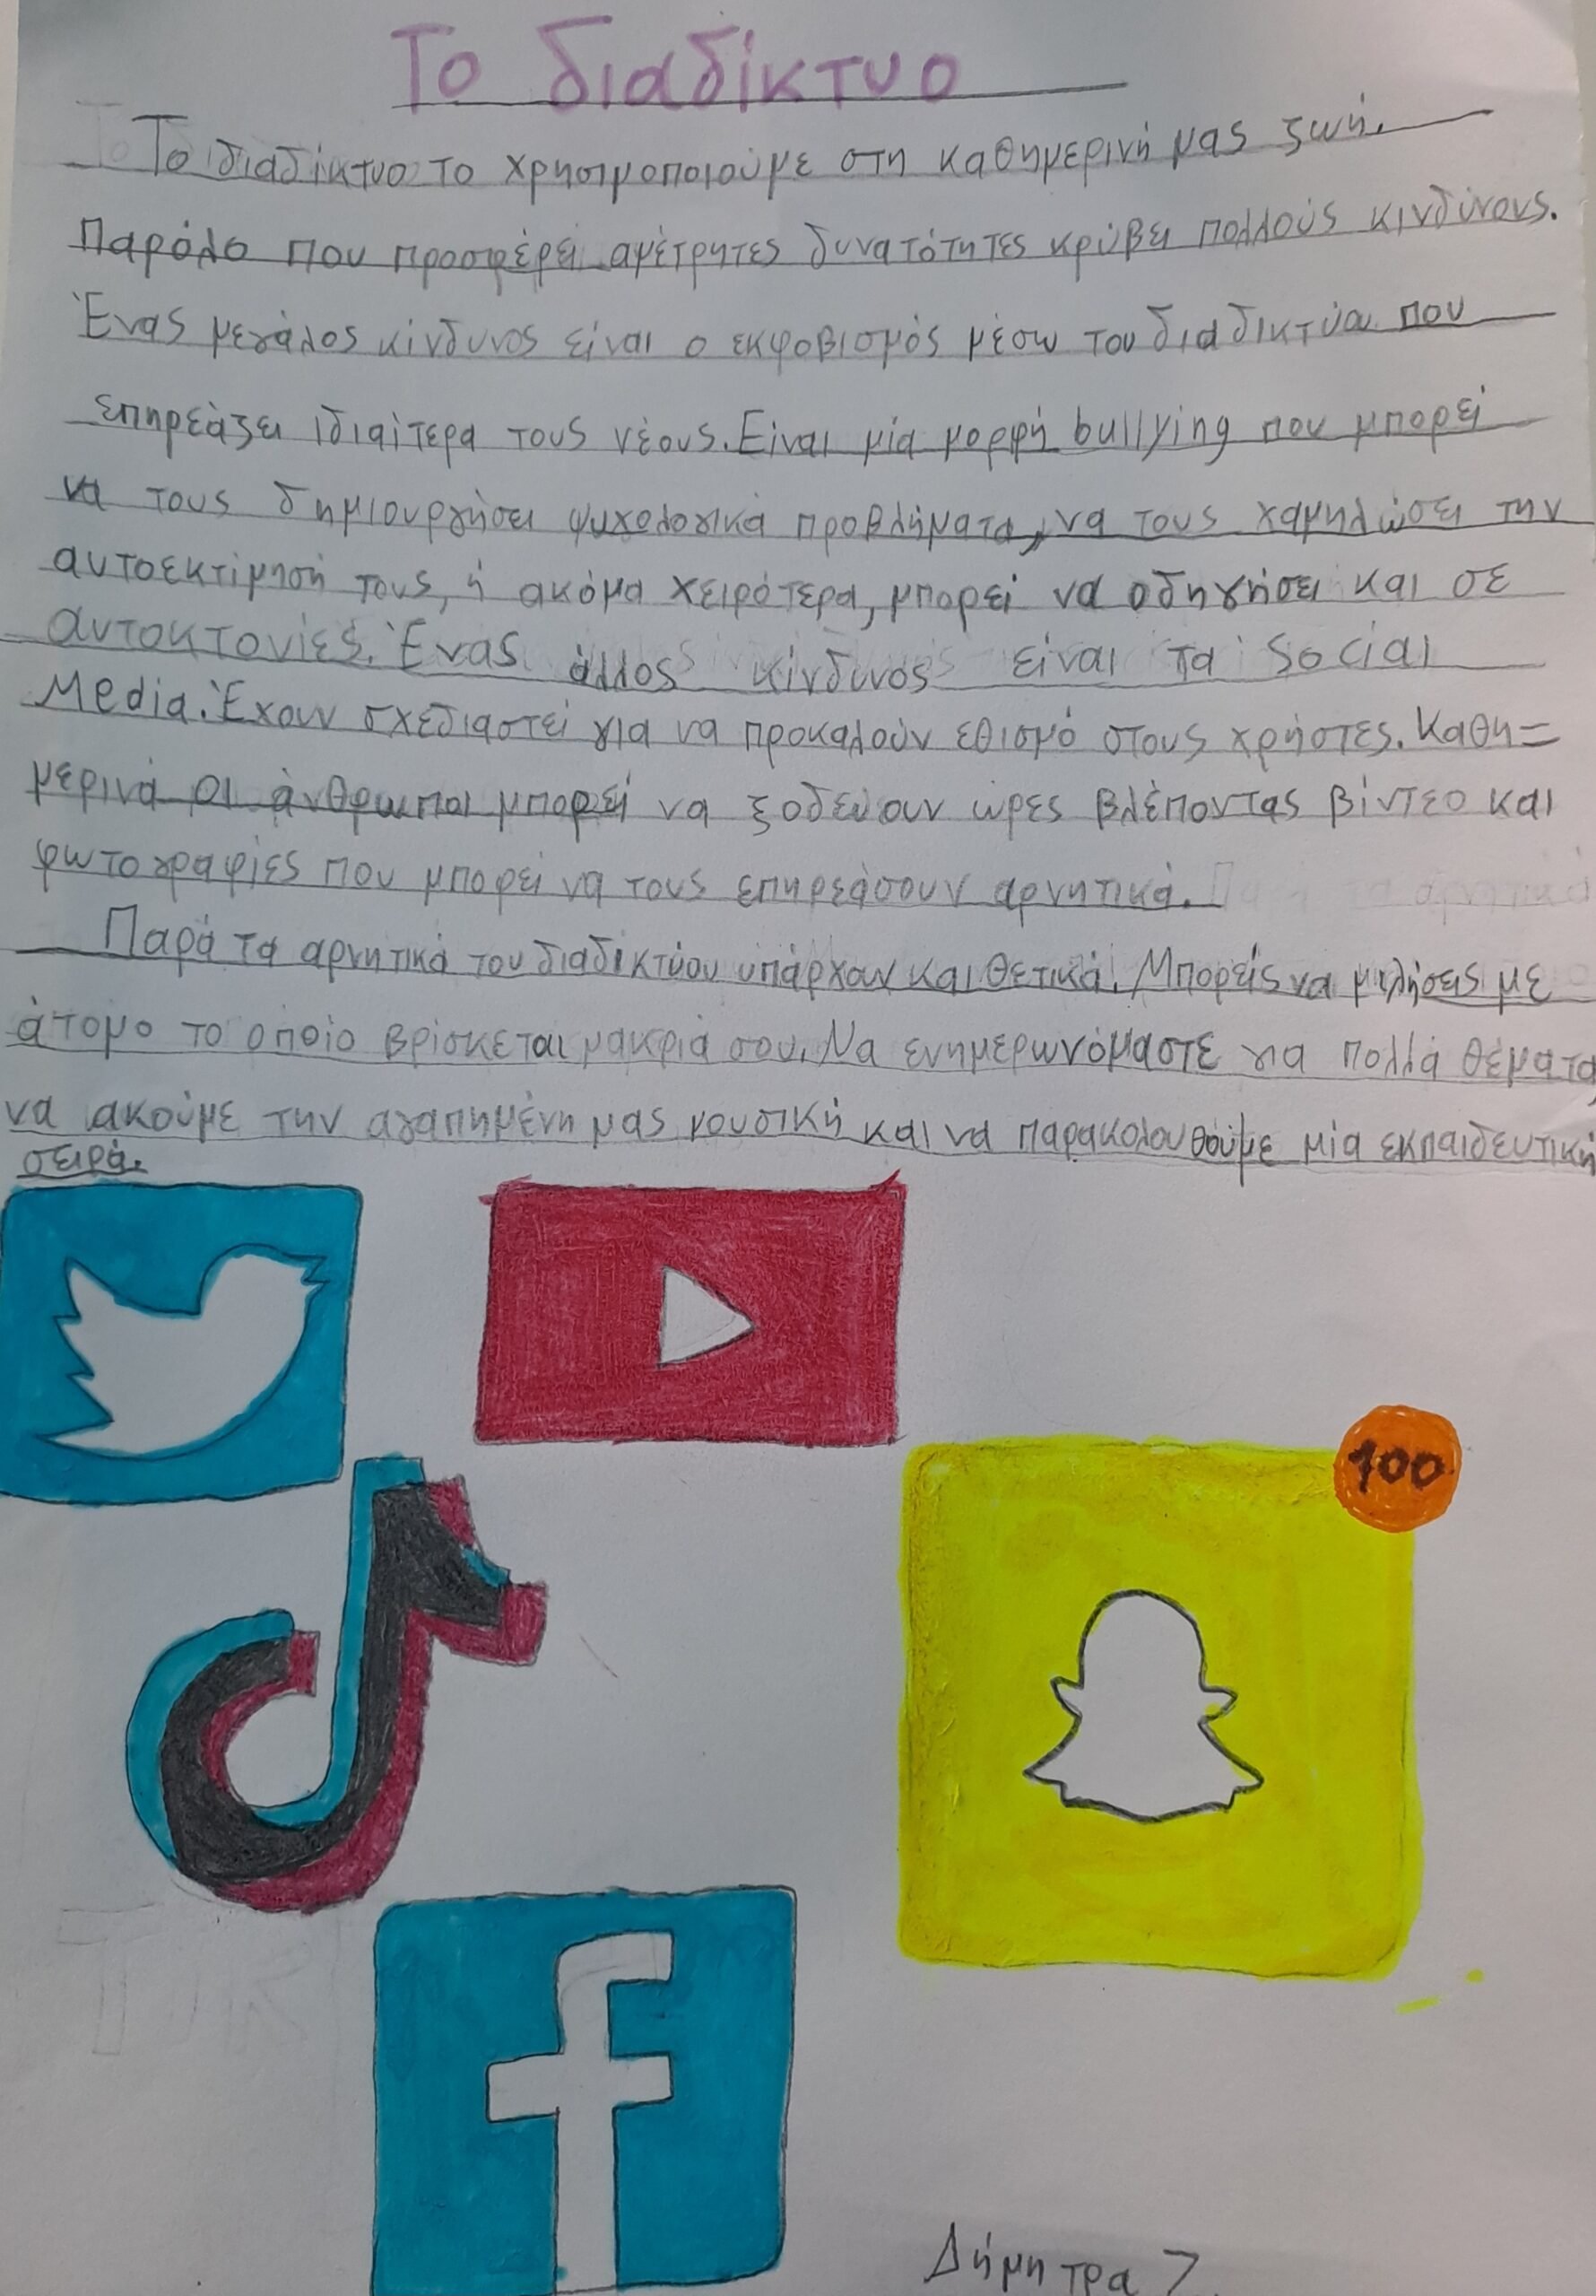 Το διαδίκτυο
Το διαδίκτυο το χρησιμοποιούμε στη καθημερινή μας ζωή.
Παρόλο που προσφέρει αμέτρητες δυνατότητες κρύβει πολλούς κινδύνους.
Ένας μεγάλος κίνδυνος είναι ο εκφοβισμός μέσω του διαδικτύου που
επηρεάζει ιδιαίτερα τους νέους. Είναι μία μορφή bullying που μπορεί
να τους δημιουργήσει ψυχολογικά προβλήματα, να τους χαμηλώσει την
αυτοεκτίμησή τους, ή ακόμα χειρότερα, μπορεί να οδηγήσει και σε
αυτοκτονίες. Ένας άλλος κίνδυνος είναι τα social
Media. Έχουν σχεδιαστεί για να προκαλούν εθισμό στους χρήστες. Καθη=
μερινά οι άνθρωποι μπορεί να ξοδεύουν ώρες βλέποντας βίντεο και
φωτογραφίες που μπορεί να τους επηρεάσουν αρνητικά.
Παρά τα αρνητικά του διαδικτύου υπάρχουν και θετικά. Μπορείς να μιλήσεις με
άτομο το οποίο βρίσκεται μακριά σου. Να ενημερωνόμαστε για πολλά θέματα,
να ακούμε την αγαπημένη μας μουσική και να παρακολουθούμε μία εκπαιδευτική
σειρά.
100
Δήμητρα Ζ.